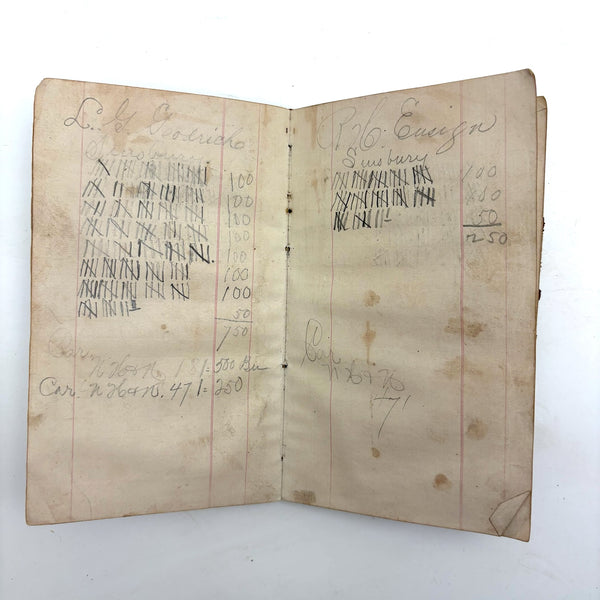 L. G. Goodrich
Simsbury
100
100
100
100
100
100
100
50
750
Car
N H & N. 181 = 500 Bu
Car. N H & N. 471 = 250
R. H. Ensign
Simsbury
100
100
50
250
Car
N H & N
471